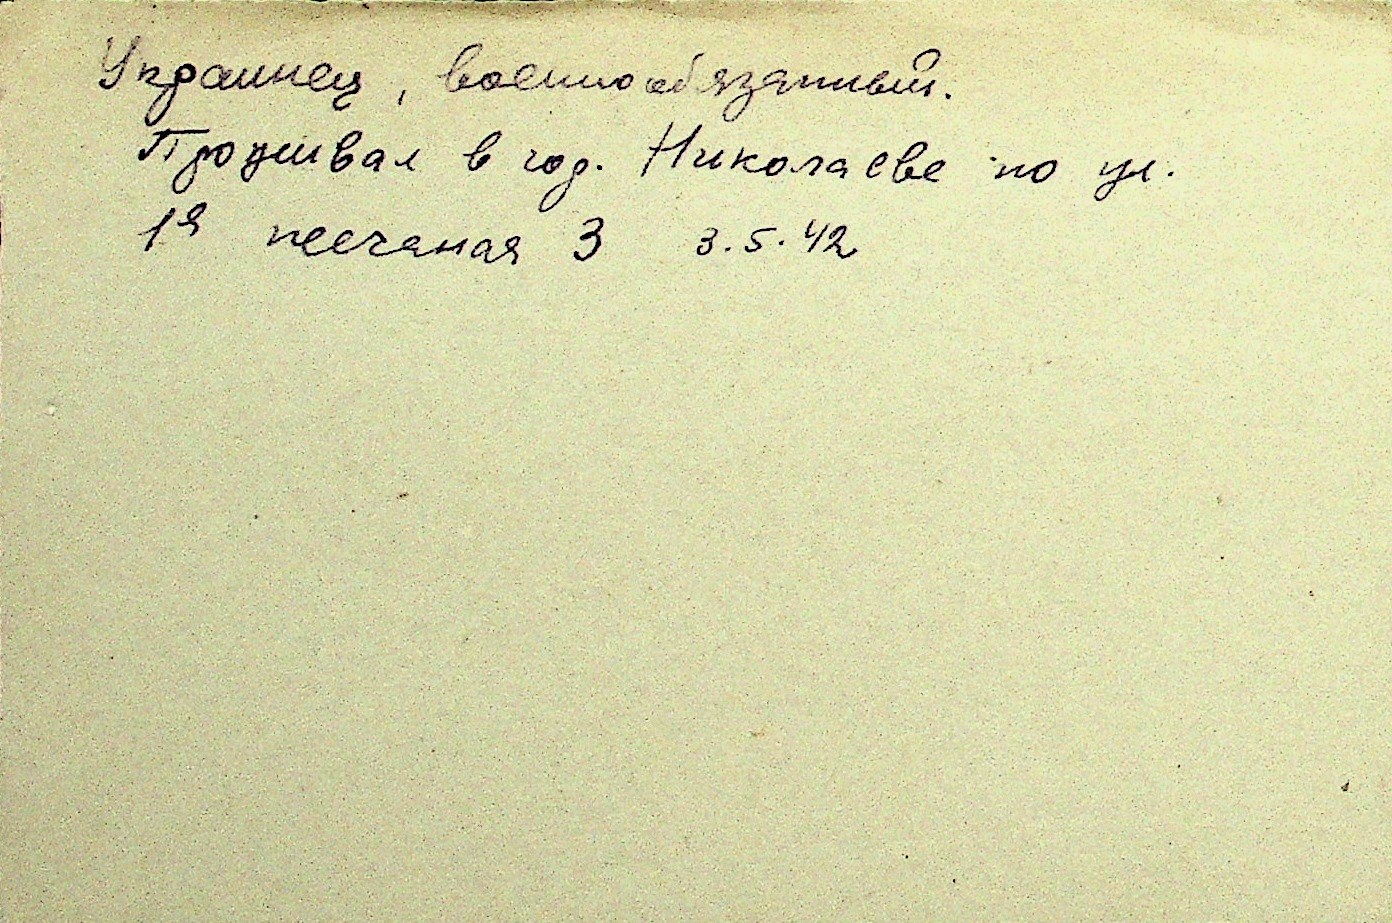 Украинец, военнообязанный.
Проживал в гор. Николаеве по ул.
1я песчаная 3 3.5.42